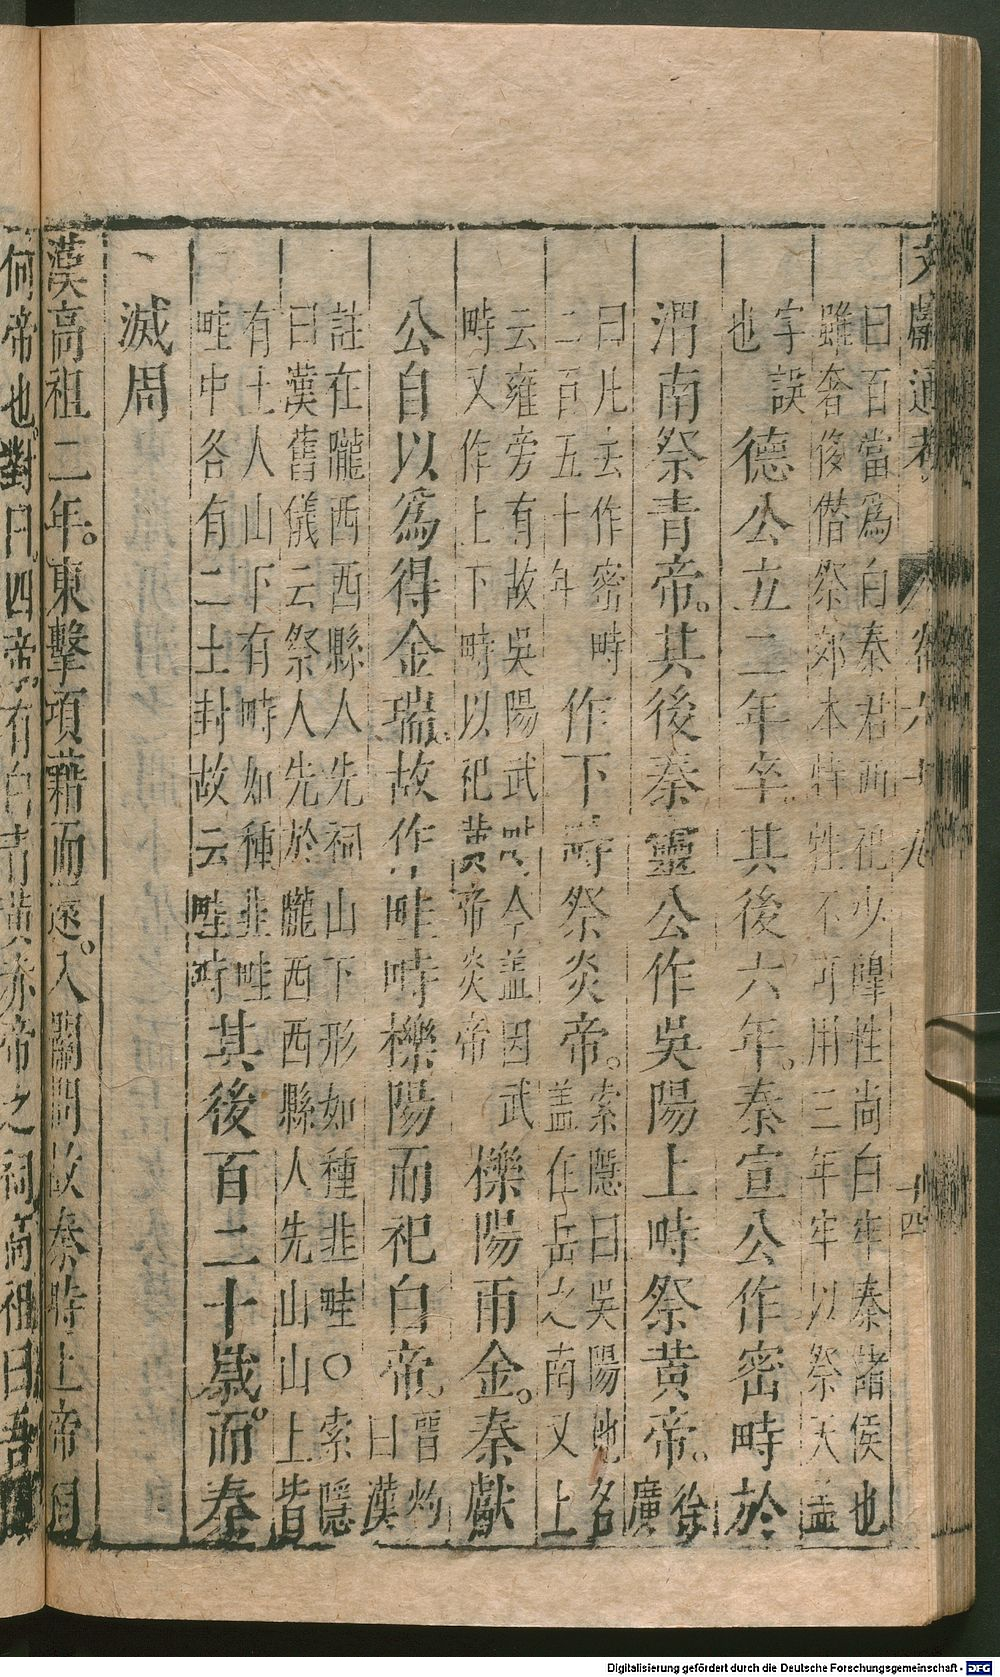 文獻通考 卷六十九 十四
曰百當爲白秦君西祖少皥牲尚白牢秦諸侯也
雖奢侈僭祭郊本特牲不可用三年牢以祭天盖
字誤
也
德公立二年卒其後六年。秦宣公作密畤於
渭南祭青帝。其後秦靈公作吳陽上畤祭黃帝。
徐
廣
曰凡去作密畤
二百五十年
作下畤祭炎帝。
索隱曰吳陽地名
盖在岳之南又上
云雍旁有故吳陽武畤今盖因武
畤又作上下畤以祀黃帝炎帝
櫟陽雨金。秦獻
公自以爲得金瑞故作畦畤櫟陽而祀白帝。
晉灼
曰漢
註在隴西西縣人先祠山下形如種韭畦○索隱
曰漢舊儀云祭人先於隴西西縣人先山山上皆
有土人山下有畤如種韭畦
畦中各有二土封故云畦畤
其後百二十歲。而秦
滅周
漢高祖二年。東擊項藉而還。入關問故秦時上帝祠
何帝也。對曰。四帝。有白青黃赤帝之祠高祖曰吾
Digitalisierung gefördert durch die Deutsche Forschungsgemeinschaft - DFG